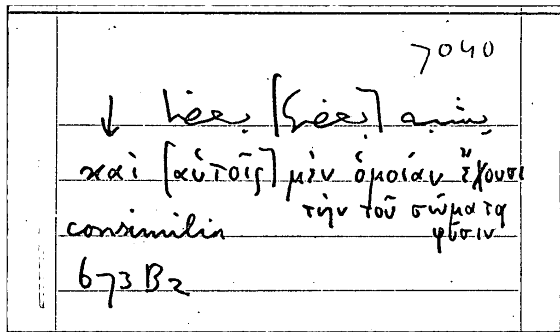 7040
↓
καὶ [αὐτοῖς] μὲν ὁμοίαν ἔχουσι
τὴν τοῦ σώματα
consimilia φύσιν
673 B2